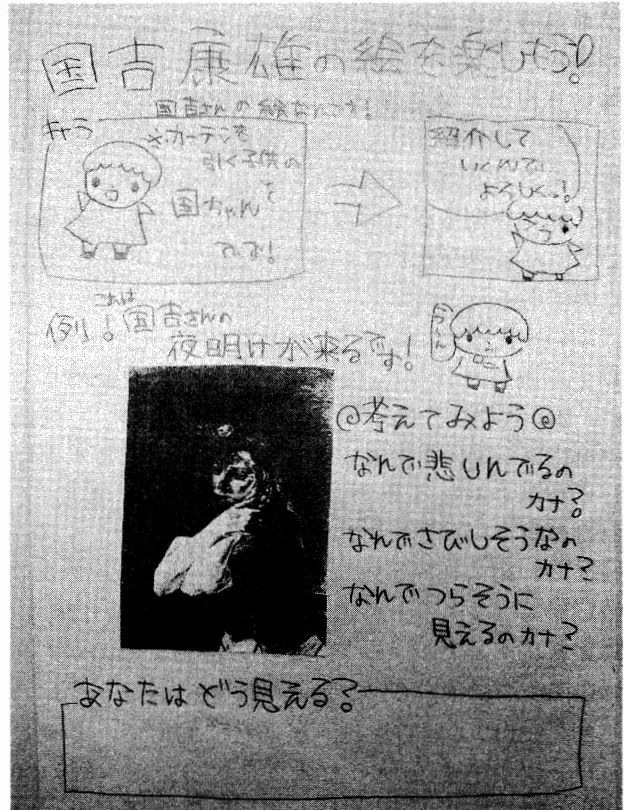 国吉康雄の絵を楽しもう!
国吉さんの絵なんです!
キャラ
☆カーテンを
引く子供の
国ちゃん
を
でーす!
紹介して
いくんで、
よろしくっ!
例!
これは
国吉さんの
夜明けが来るです!
うーん
◎考えてみよう◎
なんで悲しんでるの
カナ?
なんでさびしそうなの
カナ?
なんでつらそうに
見えるのカナ?
あなたはどう見える?